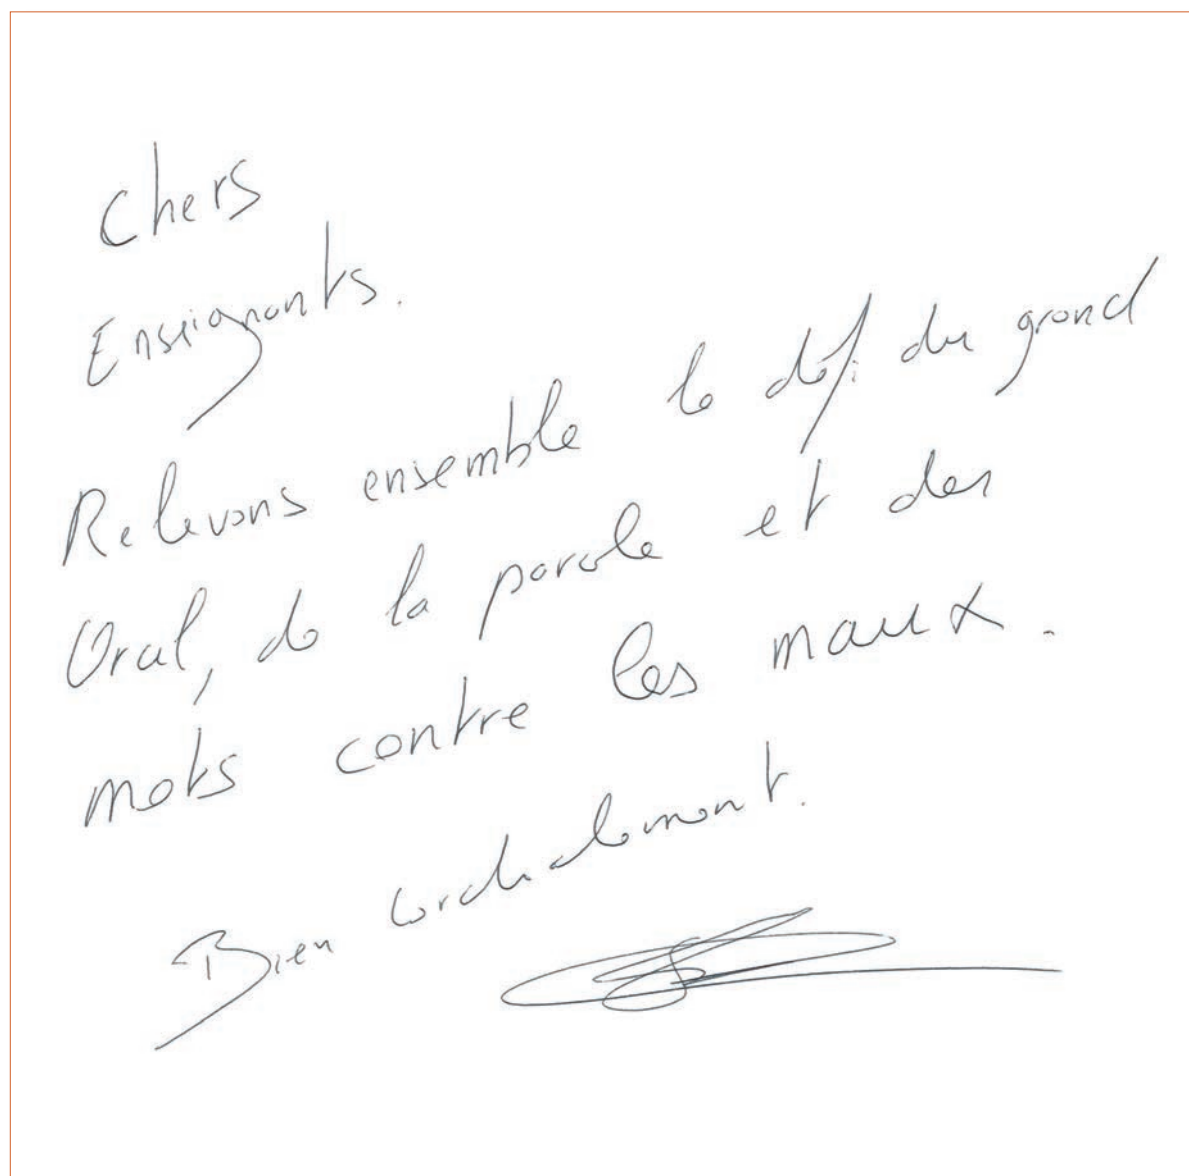 Chers
Enseignants.
Relevons ensemble le défi du grand
Oral, de la parole et des
mots contre les maux.
Bien cordialement.